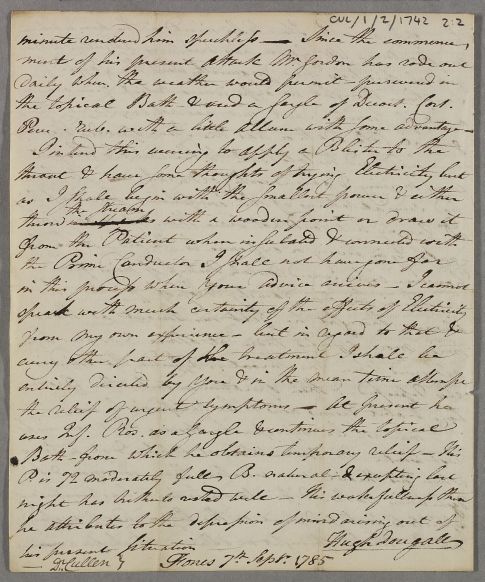 CUL/1/2/1742 2:2
minute rendered him speechless — Since the commence,
ment of his present attack Mr Gordon has rode out
daily when the weather would permit – persevered in
the topical Bath & used a Gargle of Decoct. Cort.
Peru. rub. with a little allum with some advantage –
I intend this evening to apply a Blister to the
throat & have some thoughts of trying Electricity but
as I shall begin with the smallest power & either
throw the stream with a wooden point or draw it
from the Patient when insulated & connected with
the Prime Conductor I shall not have gone far
in this process when your advice arrives – I cannot
speak with much certainty of the effects of Electricity
from my own experience – but in regard to that &
every other part of the treatment I shall be
entirely directed by you & in the mean time attempt
the relief of urgent symptoms – At present he
uses Inf. Ros. as a Gargle & continues the topical
Bath – from which he obtains temporary relief – His
P. is 72 moderately full B. natural & excepting last
night has hitherto rested well – His wakefullness then
he attributes to the depression of mind arising out of
his present situation Hugh Dougall
Dr Cullen } Hones 7th Septr. 1785